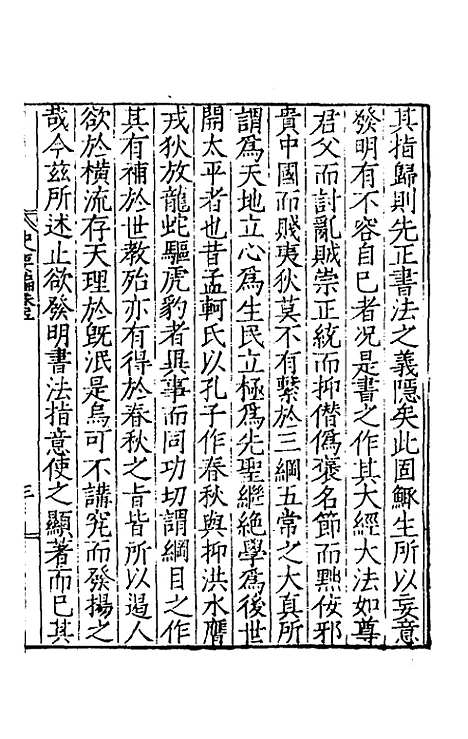 其指歸則先正書法之義隱矣此固鯫生所以妄意
發明有不容自已者况是書之作其大經大法如尊
君父而討亂賊崇正統而抑僣偽褒名節而黜佞邪
貴中國而賤夷狄莫不有繫於三綱五常之大真所
謂爲天地立心爲生民立極爲先聖繼絶學爲後世
開太平者也昔孟軻氏以孔子作春秋與抑洪水膺
戎狄放龍蛇驅虎豹者異事而同功切謂綱目之作
其有補於世教殆亦有得於春秋之旨皆所以遏人
欲於橫流存天理於旣泯是烏可不講究而發揚之
哉今兹所述止欲發明書法指意使之顯著而已其